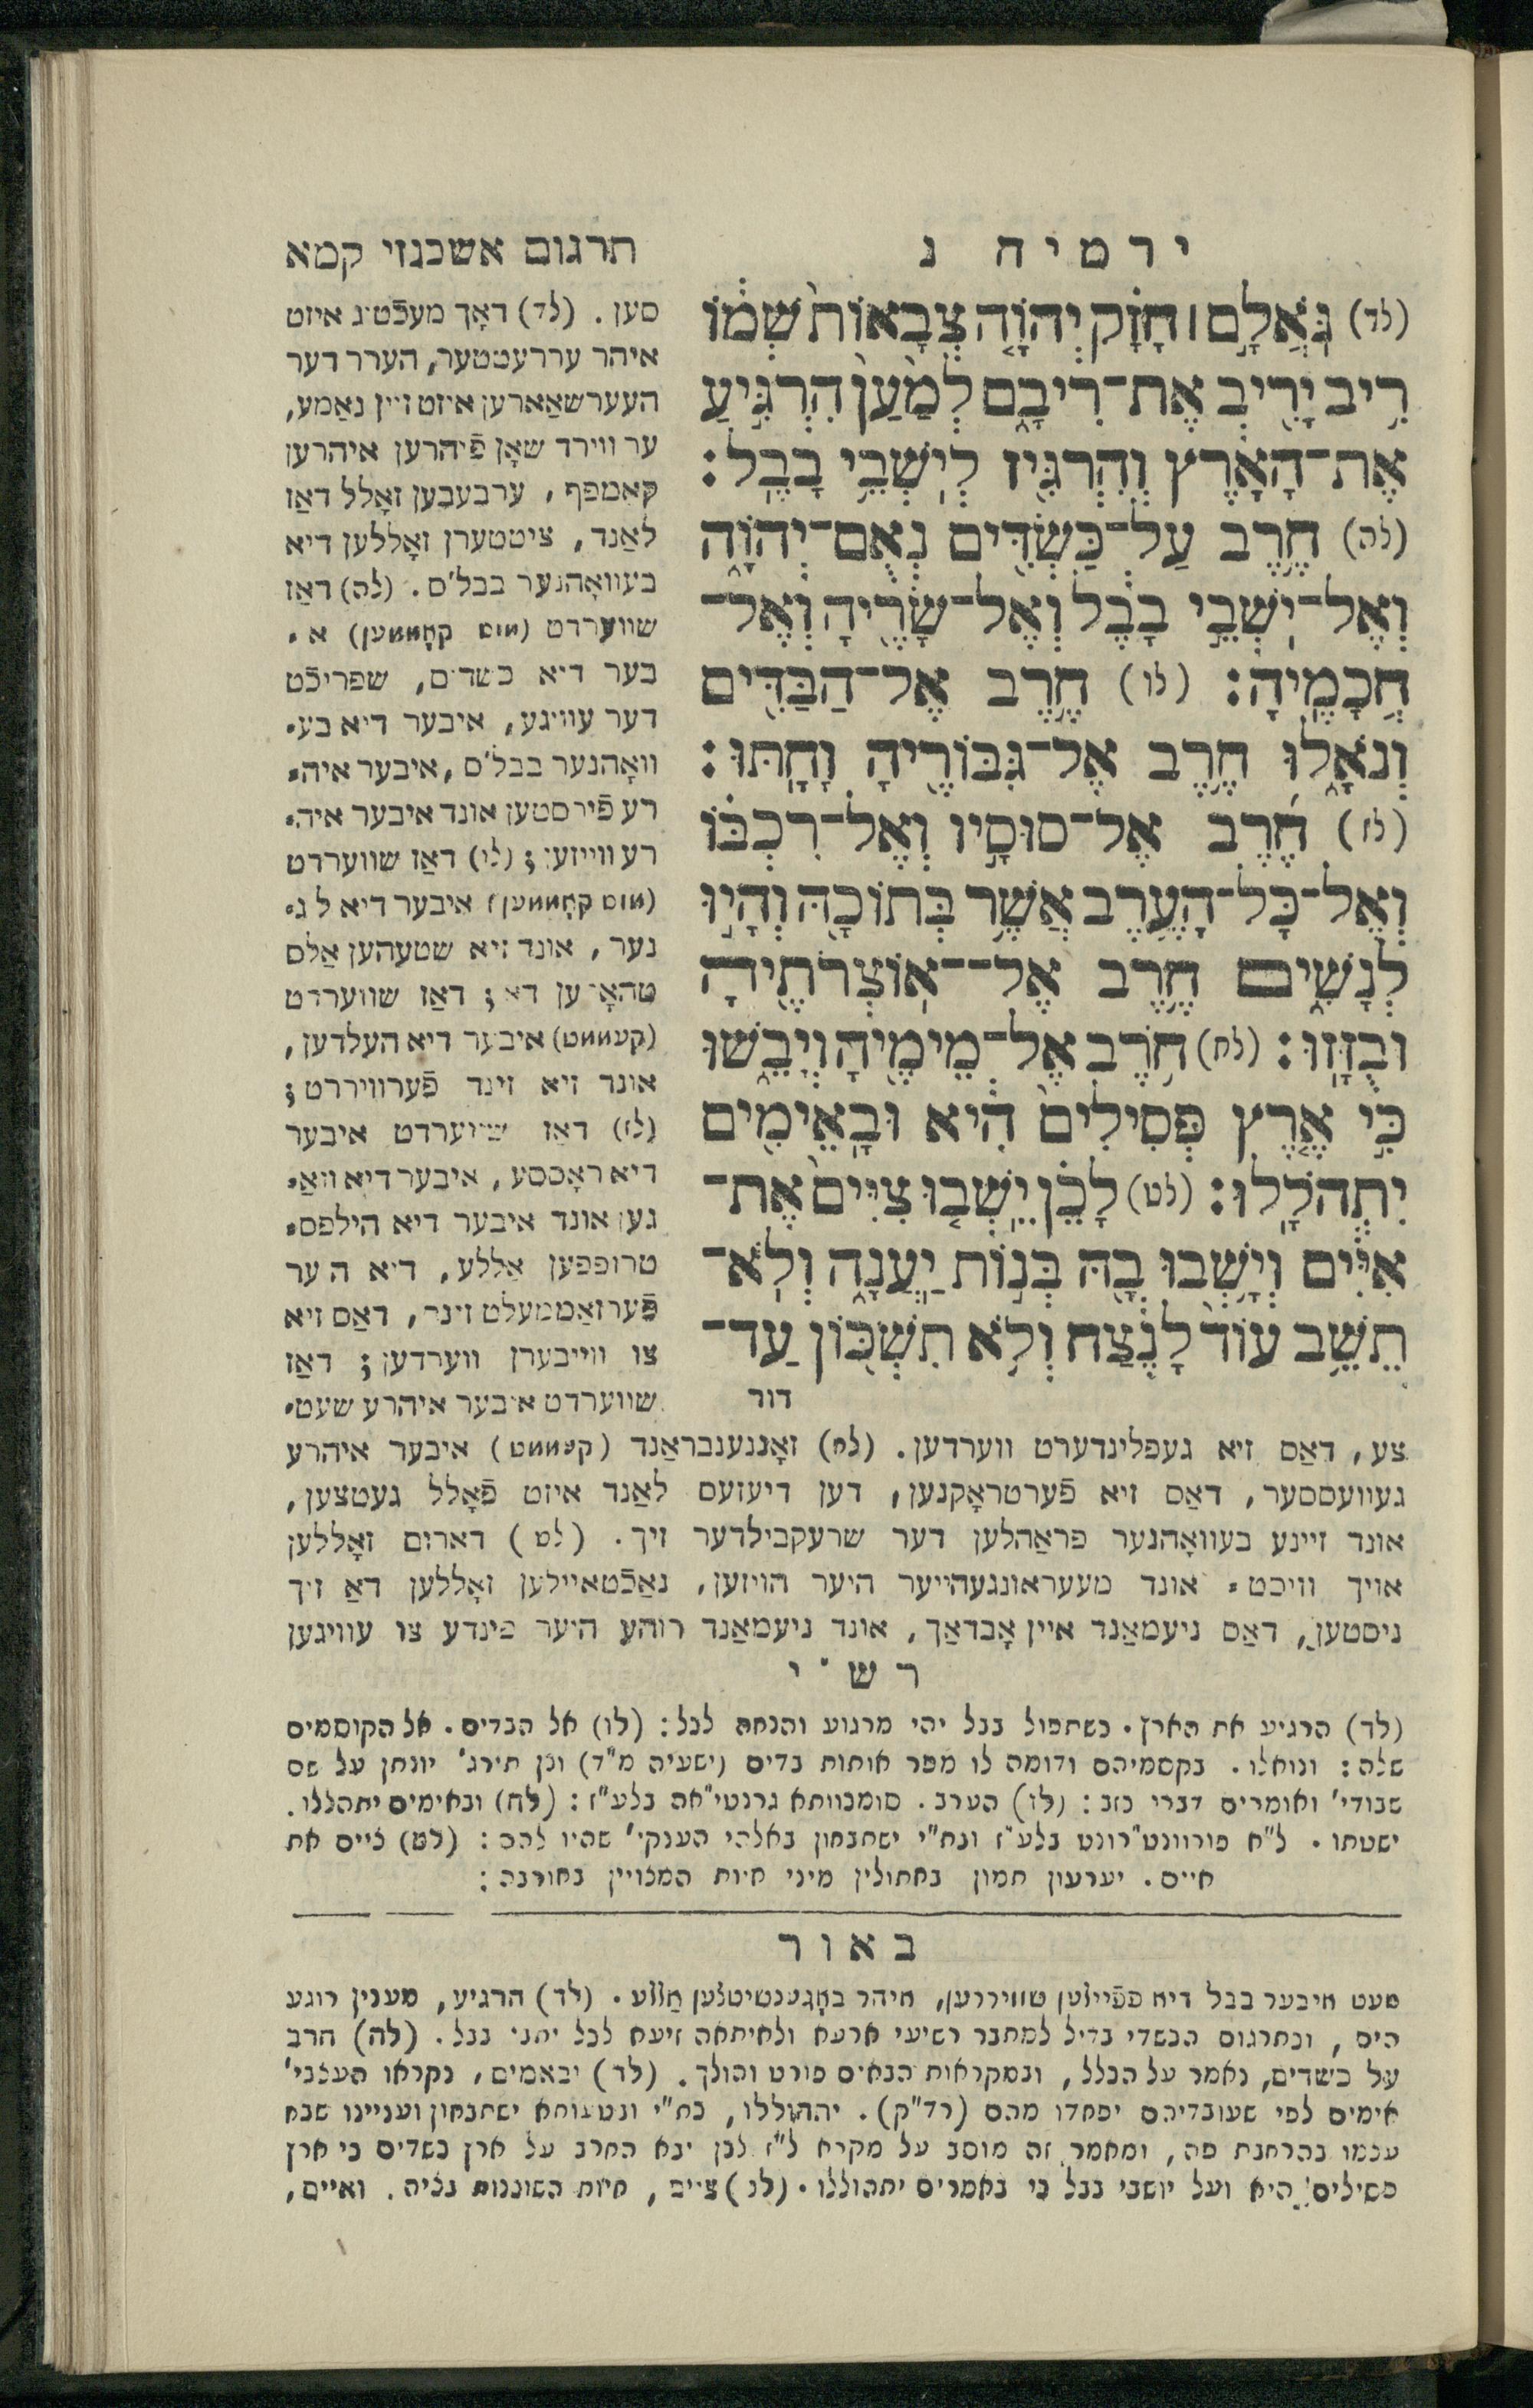 ירמיה נ
(לד) גֹּאֲלָ֣ם ׀ חָזָ֗ק יְהוָֹ֤ה צְבָאוֹת֙ שְׁמ֔וֹ
רִ֥יב יָרִ֖יב אֶת־רִיבָ֑ם לְמַ֙עַן֙ הִרְגִּ֣יעַ
אֶת־הָאָ֔רֶץ וְהִרְגִּ֖יז לְיֹשְׁבֵ֥י בָבֶֽל׃
(לה) חֶ֥רֶב עַל־כַּשְׂדִּ֖ים נְאֻם־יְהוָֹ֑ה
וְאֶל־יֹשְׁבֵ֣י בָבֶ֔ל וְאֶל־שָׂרֶ֖יהָ וְאֶל־
חֲכָמֶֽיהָ׃ (לו) חֶ֥רֶב אֶל־הַבַּדִּ֖ים
וְנֹאָ֑לוּ חֶ֥רֶב אֶל־גִּבּוֹרֶ֖יהָ וָחָֽתּוּ׃
(לז) חֶ֜רֶב אֶל־סוּסָ֣יו וְאֶל־רִכְבּ֗וֹ
וְאֶל־כָּל־הָעֶ֛רֶב אֲשֶׁ֥ר בְּתוֹכָ֖הּ וְהָי֣וּ
לְנָשִׁ֑ים חֶ֥רֶב אֶל־אֽוֹצְרֹתֶ֖יהָ
וּבֻזָּֽזוּ׃ (לח) חֹ֥רֶב אֶל־מֵימֶ֖יהָ וְיָבֵ֑שׁוּ
כִּ֣י אֶ֤רֶץ פְּסִלִים֙ הִ֔יא וּבָאֵימִ֖ים
יִתְהֹלָֽלוּ׃ (לט) לָכֵ֗ן יֵשְׁב֤וּ צִיִּים֙ אֶת־
אִיִּ֔ים וְיָ֥שְׁבוּ בָ֖הּ בְּנ֣וֹת יַֽעֲנָ֑ה וְלֹֽא־
תֵשֵׁ֥ב עוֹד֙ לָנֶ֔צַח וְלֹ֥א תִשְׁכּ֖וֹן עַד־
דור
תרגום אשכנזי קמא
סען. (לד) דאָך מעכֿטיג איזט
איהר עררעטטער, הערר דער
העערשאַארען איזט זיין נאַמע,
ער ווירד שאָן פֿיהרען איהרען
קאַמפף, ערבעבען זאָלל דאַז
לאַנד, ציטטערן זאָללען דיא
בעוואָהנער בבל'ס. (לה) דאַז
שווערדט (מוס קאָממען) א⸗
בער דיא כשדים, שפריכֿט
דער עוויגע, איבער דיא בע⸗
וואָהנער בבל'ס, איבער איה⸗
רע פֿירסטען אונד איבער איה⸗
רע ווייזע; (לו) דאַז שווערדט
(מוס קאָממען) איבער דיא ליג⸗
נער, אונד זיא שטעהען אַלס
טהאָרען דאַ; דאַז שווערדט
(קעממט) איבער דיא העלדען,
אונד זיא זינד פֿערוויררט;
(לז) דאַז שווערדט איבער
דיא ראָססע, איבער דיא וואַ⸗
גען אונד איבער דיא הילפס⸗
טרופפען אַללע, דיא היער
פֿערזאַממעלט זינד, דאַס זיא
צו ווייבערן ווערדען; דאַז
שווערדט איבער איהרע שעט⸗
צע, דאַס זיא געפלינדערט ווערדען. (לח) זאָננענבראַנד (קעממט) איבער איהרע
געוועססער, דאַס זיא פֿערטראָקנען, דען דיעזעס לאַנד איזט פֿאָלל געטצען,
אונד זיינע בעוואָהנער פראַהלען דער שרעקבילדער זיך. (לט) דארום זאָללען
אויך וויכט⸗ אונד מעעראונגעהייער היער הויזען, נאַכֿטאיילען זאָללען דאַ זיך
ניסטען, דאַס ניעמאַנד איין אָבדאַך, אונד ניעמאַנד רוהע היער פינדע צו עוויגען
רש"י
(לד) הרגיע את הארץ. כשתפול בבל יהי מרגוע והנחה לכל: (לו) אל הבדים. אל הקוסמים
שלה: ונואלו. בקסמיהם ודומה לו מפר אותות בדים (ישעיה מ"ד) וכן תירג' יונתן על שם
שבודי' ואומרים דברי כזב: (לז) הערב. סומכוותא גרנטי"אה בלע"ז: (לח) ובאימים יתהללו.
ישטתו. ל"א פורוונט"רונט בלע"ז ובת"י ישתבחון באלהי הענקי' שהיו להם: (לט) ציים את
איים. יערעון תמון בחתולין מיני חיות המצויין בחורבה:
באור
סעט איבער בבל דיא פפֿיילען שוויררען, איהר באָגענשיטצען אַללע. (לד) הרגיע, מענין רוגע
הים, ובתרגום הכשדי בדיל למתבר רשיעי ארעא ולאיתאה זיעא לכל יתבי בבל. (לה) חרב
על כשדים, נאמר על הכלל, ובמקראות הבאים פורט והולך. (לד) ובאמים, נקראו העצבי'
אימים לפי שעובדיהם יפחדו מהם (רד"ק). יתהוללו, בת"י ובטעותא ישתבחון ועניינו שבח
עצמו בהרחבת פה, ומאמר זה מוסב על מקרא ל"ז לכן יבא החרב על ארץ כשדים כי ארץ
פסילים היא ועל יושבי בבל כי באמרים יתהוללו. (לג) ציים, חיות השוכנות בציה. ואיים,